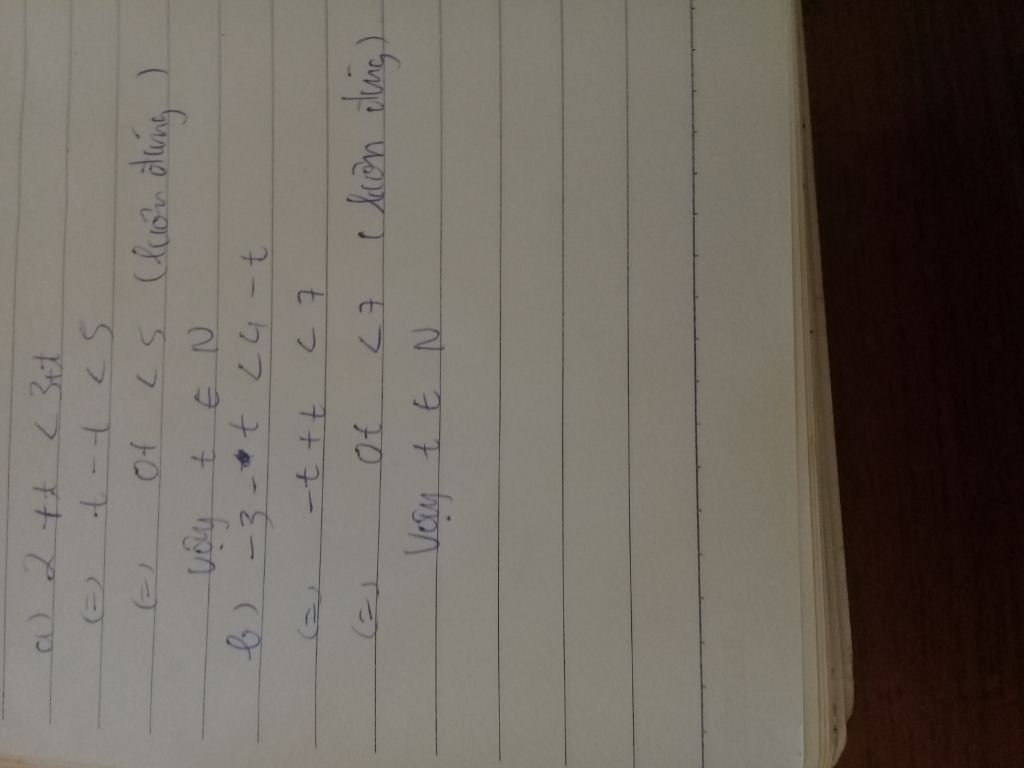 a) 2 + t < 3 + t
(=) t - t < 5
(=) 0t < 5 (luôn đúng)
Vậy t ∈ N
b) -3 - t < 4 - t
(=) -t + t < 7
(=) 0t < 7 (luôn đúng)
Vậy t ∈ N